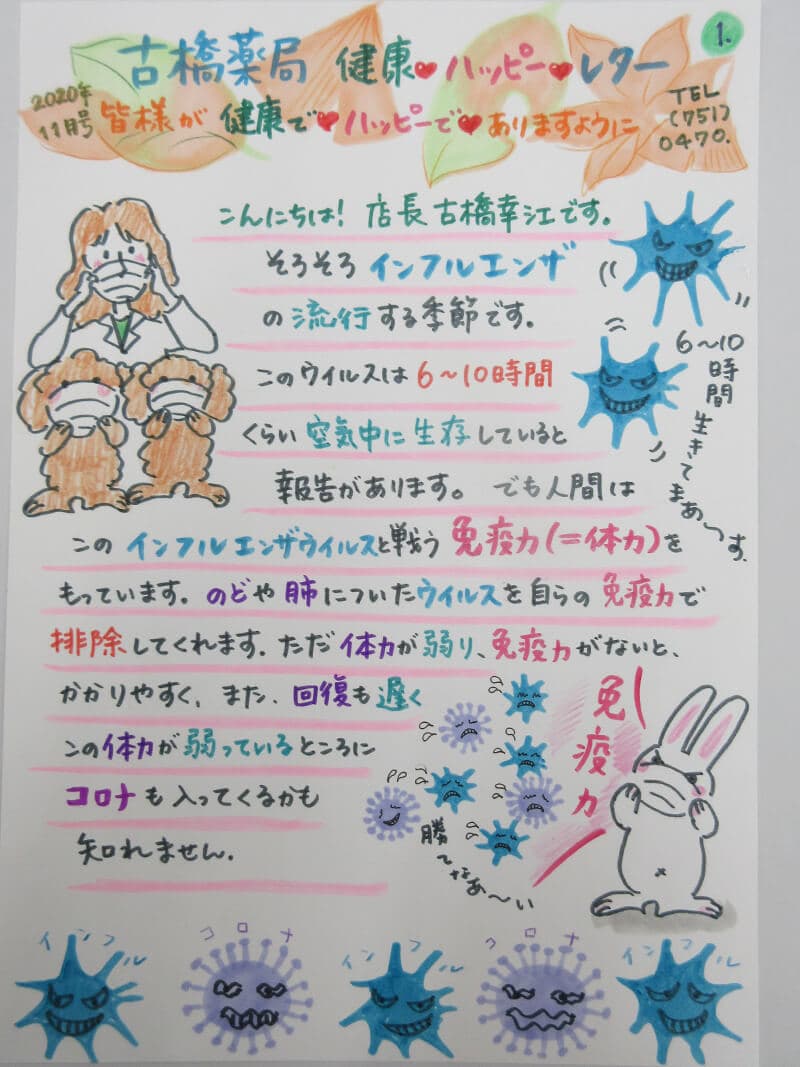 1.
古橋薬局 健康♥ハッピー♥レター
2020年
11月号
皆様が 健康で♥ハッピーで♥ありますように
TEL
(751)
0470.
こんにちは! 店長 古橋幸江です。
そろそろ インフルエンザ
の 流行する季節です。
このウイルスは 6~10時間
くらい 空気中に生存していると
報告があります。 でも人間は
この インフルエンザウイルスと戦う 免疫力(=体力)を
もっています。のどや肺についたウイルスを自らの免疫力で
排除してくれます。ただ体力が弱り、免疫力がないと、
かかりやすく、また、回復も遅く
この体力が弱っているところに
コロナも入ってくるかも
知れません。
6~10時間 生きてまあ~す。
免疫力
勝てなあ~い
インフル
コロナ
インフル
コロナ
インフル